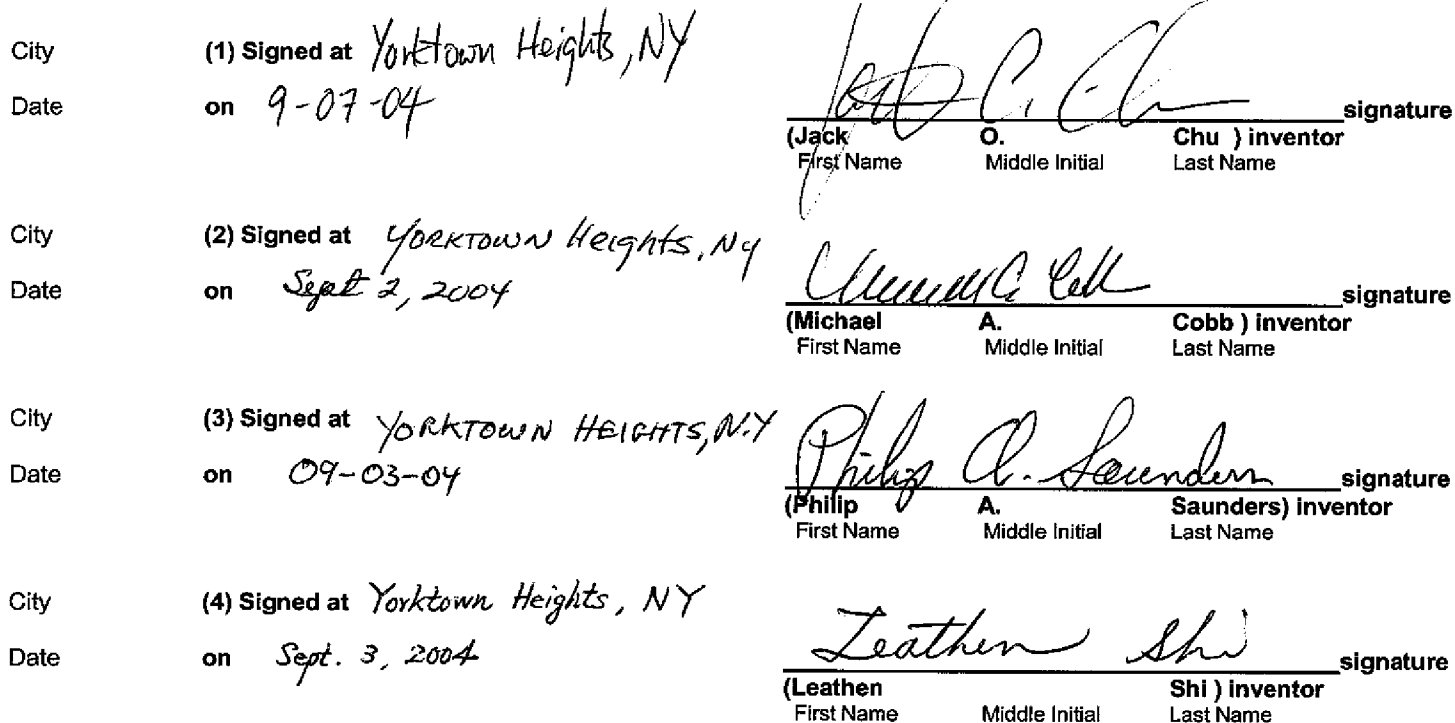 City (1) Signed at Yorktown Heights, NY
Date on 9-07-04
signature
(Jack O. Chu ) inventor
First Name Middle Initial Last Name
City (2) Signed at YORKTOWN Heights, Ny
Date on Sept 2, 2004
signature
(Michael A. Cobb ) inventor
First Name Middle Initial Last Name
City (3) Signed at YORKTOWN HEIGHTS, N.Y
Date on 09-03-04
Philip A. Saunders signature
(Philip A. Saunders) inventor
First Name Middle Initial Last Name
City (4) Signed at Yorktown Heights, NY
Date on Sept. 3, 2004
Leathen Shi signature
(Leathen Shi ) inventor
First Name Middle Initial Last Name